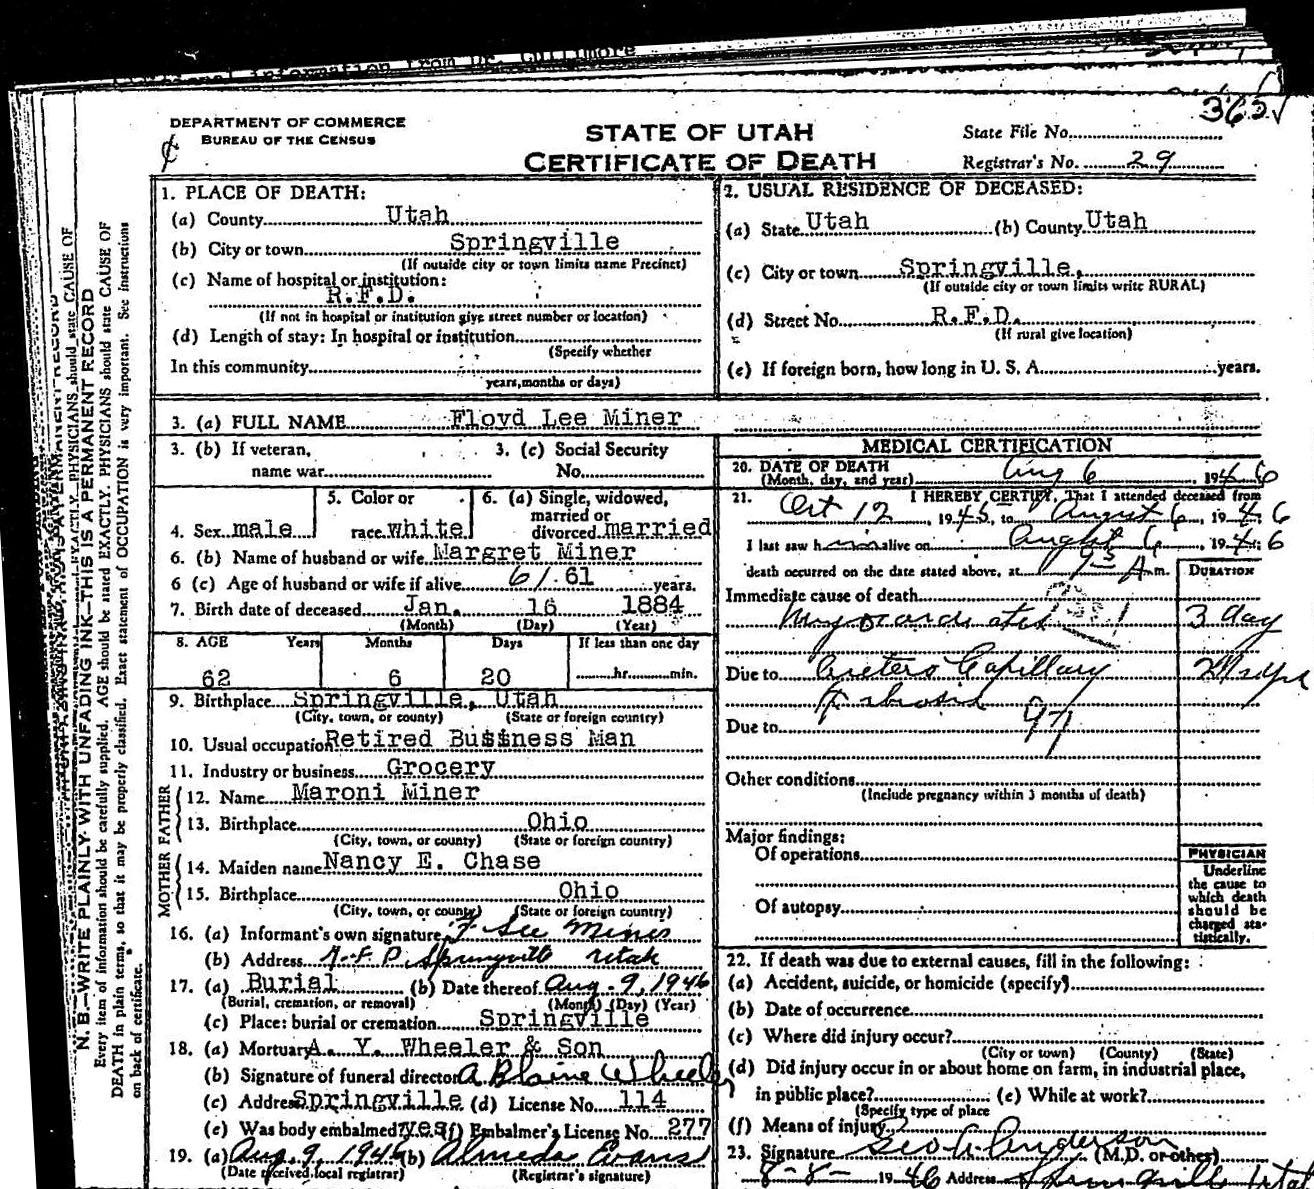 Additional information from Dr. Cullimore
365
DEPARTMENT OF COMMERCE
BUREAU OF THE CENSUS
STATE OF UTAH
CERTIFICATE OF DEATH
State File No.
Registrar's No. 29
1. PLACE OF DEATH:
(a) County Utah
(b) City or town Springville
(If outside city or town limits name Precinct)
(c) Name of hospital or institution:
R.F.D.
(If not in hospital or institution give street number or location)
(d) Length of stay: In hospital or institution
(Specify whether
In this community
years, months or days)
2. USUAL RESIDENCE OF DECEASED:
(a) State Utah (b) County Utah
(c) City or town Springville,
(If outside city or town limits write RURAL)
(d) Street No. R.F.D.
(If rural give location)
(e) If foreign born, how long in U. S. A. years.
3. (a) FULL NAME Floyd Lee Miner
3. (b) If veteran,
name war
3. (c) Social Security
No.
4. Sex male
5. Color or
race white
6. (a) Single, widowed,
married or
divorced married
6. (b) Name of husband or wife Margret Miner
6 (c) Age of husband or wife if alive 61. 61 years.
7. Birth date of deceased Jan. 16 1884
(Month) (Day) (Year)
8. AGE Years Months Days If less than one day
62 6 20 hr. min.
9. Birthplace Springville, Utah
(City, town, or county) (State or foreign country)
10. Usual occupation Retired Business Man
11. Industry or business Grocery
FATHER
12. Name Maroni Miner
13. Birthplace Ohio
(City, town, or county) (State or foreign country)
MOTHER
14. Maiden name Nancy E. Chase
15. Birthplace Ohio
(City, town, or county) (State or foreign country)
16. (a) Informant's own signature F Lee Miner
(b) Address R.F.D. Springville Utah
17. (a) Burial (b) Date thereof Aug. 9, 1946
(Burial, cremation, or removal) (Month) (Day) (Year)
(c) Place: burial or cremation Springville
18. (a) Mortuary A. Y. Wheeler & Son
(b) Signature of funeral director A Blaine Wheeler
(c) Address Springville (d) License No. 114
(e) Was body embalmed? yes (f) Embalmer's License No. 277
19. (a) Aug. 9, 1946 (b) Almeda Evans
(Date received local registrar) (Registrar's signature)
MEDICAL CERTIFICATION
20. DATE OF DEATH
(Month, day, and year) Aug 6, 1946
21. I HEREBY CERTIFY, That I attended deceased from
Oct 12, 1945, to August 6, 1946
I last saw him alive on August 6, 1946
death occurred on the date stated above, at A m.
DURATION
Immediate cause of death
3 day
Due to Capillary
Fibrosis
97
Due to
Other conditions
(Include pregnancy within 3 months of death)
Major findings:
Of operations
Of autopsy
PHYSICIAN
Underline
the cause to
which death
should be
charged sta-
tistically.
22. If death was due to external causes, fill in the following:
(a) Accident, suicide, or homicide (specify)
(b) Date of occurrence
(c) Where did injury occur?
(City or town) (County) (State)
(d) Did injury occur in or about home on farm, in industrial place,
in public place? (e) While at work?
(Specify type of place
(f) Means of injury
23. Signature Geo A. Anderson (M.D. or other)
8-8- 1946 Address Springville Utah
N. B.—WRITE PLAINLY WITH UNFADING INK—THIS IS A PERMANENT RECORD
Every item of information should be carefully supplied. AGE should be stated EXACTLY. PHYSICIANS should state CAUSE OF
DEATH in plain terms, so that it may be properly classified. Exact statement of OCCUPATION is very important. See instructions
on back of certificate.